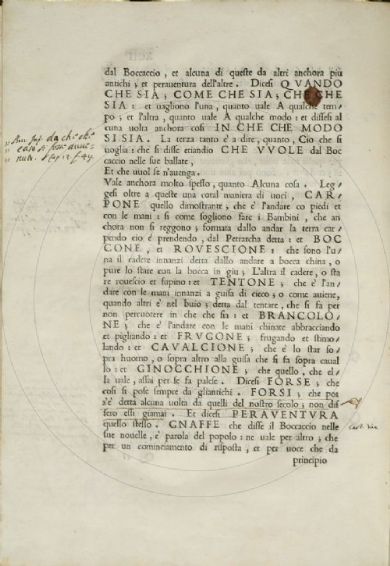 dal Boccaccio, et alcuna di queste da altri anchora piu
antichi; et perauentura dell'altre. Dicesi QVANDO
CHE SIA; COME CHE SIA; CHE CHE
SIA: et uagliono l'una, quanto uale A qualche tem⸗
po; et l'altra, quanto uale A qualche modo: et dissesi al
cuna uolta anchora cosi IN CHE CHE MODO
SI SIA. La terza tanto è a dire, quanto, Cio che si
uoglia: che si disse etiandio CHE VVOLE dal Boc
caccio nelle sue ballate,
Et che uuol se n'auenga.
Vale anchora molto spesso, quanto Alcuna cosa. Leg⸗
gesi oltre a queste una cotal maniera di uoci, CAR⸗
PONE quello dimostrante; che è l'andare co piedi et
con le mani: si come sogliono fare i Bambini, che an
chora non si reggono; formata dallo andar la terra car⸗
pendo cio è prendendo, dal Petrarcha detta: et BOC
CONE, et ROVESCIONE: che sono l'u⸗
na il cadere innanzi detta dallo andare a bocca china, o
pure lo stare con la bocca in giu; L'altra il cadere, o sta
re rouescio et supino: et TENTONE; che è l'an⸗
dare con le mani innanzi a guisa di cieco; o come auiene,
quando altri è nel buio; detta dal tentare, che si fa per
non percuotere in che che sia: et BRANCOLO⸗
NE; che è l'andare con le mani chinate abbracciando
et pigliando: et FRVGONE; frugando et stimo⸗
lando: et CAVALCIONE; che è lo star so⸗
pra huomo, o sopra altro alla guisa che si fa sopra caual
lo: et GINOCCHIONE; che quello, che el⸗
la uale, assai per se fa palese. Dicesi FORSE; che
cosi si pose sempre da gliantichi. FORSI; che poi
s'è detta alcuna uolta da quelli del nostro secolo; non dis
sero essi giamai. Et dicesi PERAVENTVRA
quello stesso. GNAFFE che disse il Boccaccio nelle
sue nouelle, è parola del popolo: ne uale per altro; che
per un cominciamento di risposta, et per uoce che da
principio